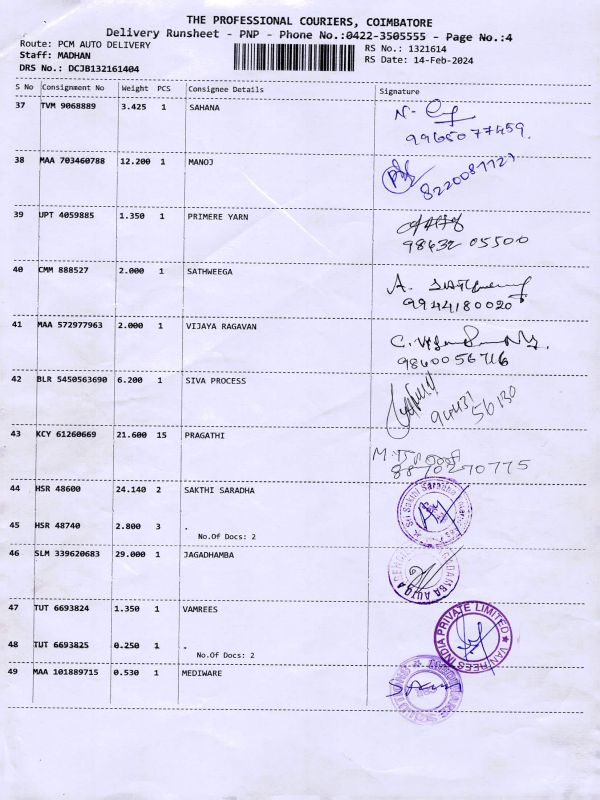 THE PROFESSIONAL COURIERS, COIMBATORE
Delivery Runsheet - PNP - Phone No.:0422-3505555 - Page No.:4
Route: PCM AUTO DELIVERY
RS No.: 1321614
Staff: MADHAN
RS Date: 14-Feb-2024
DRS No.: DCJB132161404
S No Consignment No Weight PCS Consignee Details Signature
37 TVM 9068889 3.425 1 SAHANA
9965077459
38 MAA 703460788 12.200 1 MANOJ
8220081121
39 UPT 4059885 1.350 1 PRIMERE YARN
98432 05500
40 CMM 888527 2.000 1 SATHWEEGA
9944180020
41 MAA 572977963 2.000 1 VIJAYA RAGAVAN
9840056716
42 BLR 5450563690 6.200 1 SIVA PROCESS
94431 56130
43 KCY 61260669 21.600 15 PRAGATHI
8870270775
44 HSR 48600 24.140 2 SAKTHI SARADHA
Sri Sakthi Saradha
45 HSR 48740 2.800 3 .
No.Of Docs: 2
46 SLM 339620683 29.000 1 JAGADHAMBA
47 TUT 6693824 1.350 1 VAMREES
VAN REES INDIA PRIVATE LIMITED
48 TUT 6693825 0.250 1 .
No.Of Docs: 2
49 MAA 101889715 0.530 1 MEDIWARE